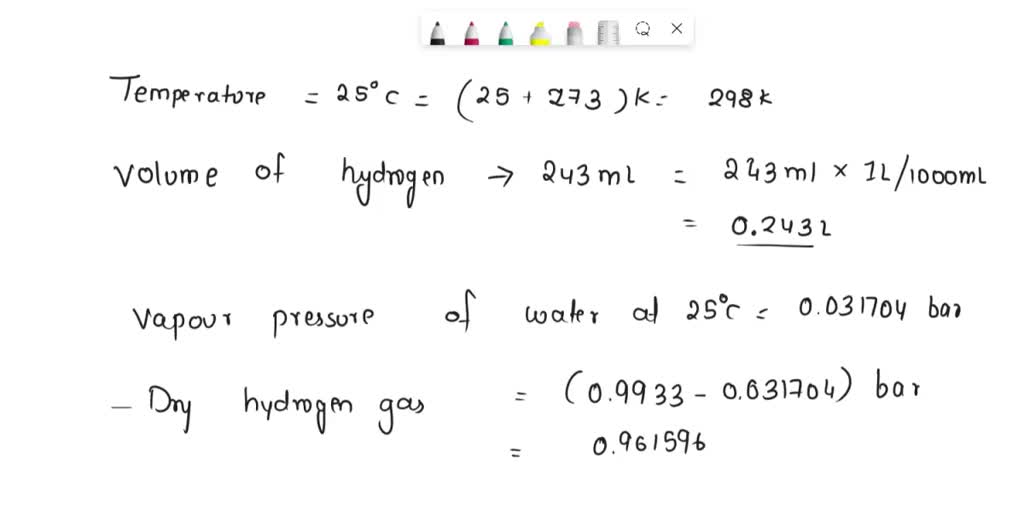 Temperature = 25°C = (25 + 273)K = 298K
Volume of hydrogen → 243mL = 243ml × 1L/1000mL
= 0.243L
Vapour pressure of water at 25°C = 0.031704 bar
- Dry hydrogen gas = (0.9933 - 0.031704) bar
= 0.961596